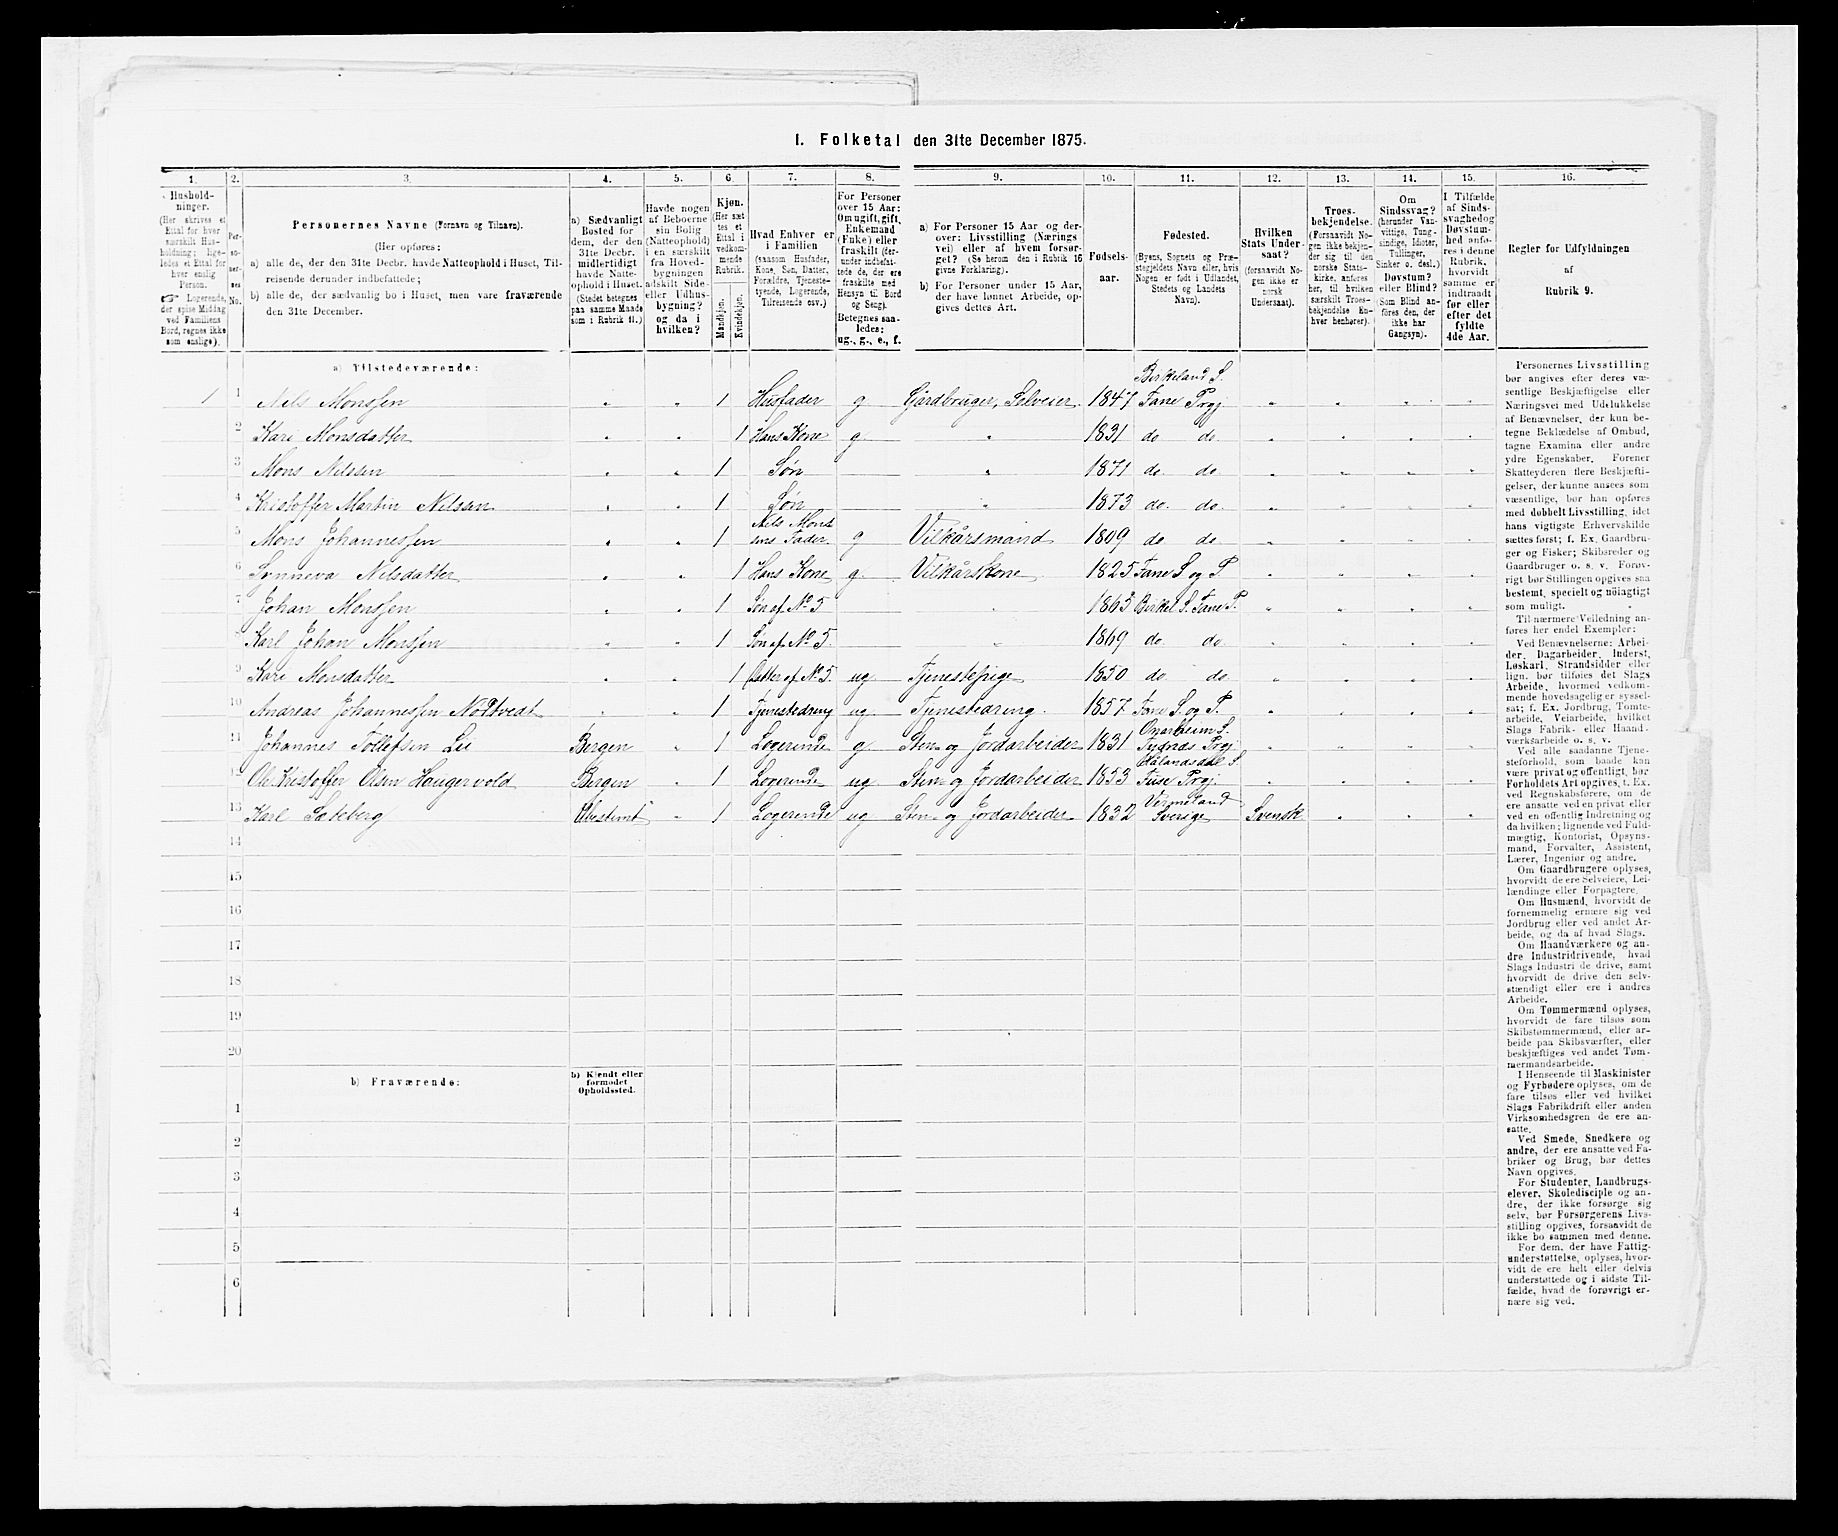 I. Folketal den 31te December 1875.
1. 2. 3. 4. 5. 6. 7. 8. 9. 10. 11. 12. 13. 14. 15. 16.
Hushold-
ninger.
(Her skrives et
Ettal for hver
særskilt Hus-
holdning; lige-
ledes et Ettal for
hver enslig
Person.
☞ Logerende,
der spise Middag
ved Familiens
Bord, regnes ikke
som enslige).
Per-
so-
ner-
nes
No.
Personernes Navne (Fornavn og Tilnavn).
(Her opføres:
a) alle de, der den 31te Decbr. havde Natteophold i Huset, Til-
reisende derunder indbefattede;
b) alle de, der sædvanlig bo i Huset, men vare fraværende
den 31te December.
a) Sædvanligt
Bosted for
dem, der den
31te Decbr.
midlertidigt
havde Natte-
ophold i Huset.
(Stedet betegnes
paa samme Maade
som i Rubrik 11.)
Havde nogen
af Beboerne
sin Bolig
(Natteophold)
i en særskilt
fra Hoved-
bygningen
adskilt Side-
eller Udhus-
bygning?
og da i
hvilken?
Kjøn.
(Her sæt
tes et
Ettal i
vedkom-
mende
Rubrik.
Mandkjøn.
Kvindekjøn.
Hvad Enhver er
i Familien
(saasom Husfader,
Kone, Søn, Datter,
Forældre, Tjeneste-
tyende, Logerende,
Tilreisende osv.)
For Personer
over 15 Aar:
Om ugift, gift,
Enkemand
(Enke) eller
fraskilt (der-
under indbefat-
tede de, der ere
fraskilte med
Hensyn til Bord
og Seng).
Betegnes saa-
ledes:
ug., g., e., f.
a) For Personer 15 Aar og der-
over: Livsstilling (Nærings
vei) eller af hvem forsør-
get? (Se herom den i Rubrik 16
givne Forklaring).
b) For Personer under 15 Aar,
der have lønnet Arbeide, op-
gives dettes Art.
Fødsels-
aar.
Fødested.
(Byens, Sognets og Præ-
stegjeldets Navn eller, hvis
Nogen er født i Udlandet,
Stedets og Landets
Navn).
Hvilken
Stats Under-
saat?
(forsaavidt No-
gen ikke er
norsk
Undersaat).
Troes-
bekjendelse.
(Forsaavidt No-
gen ikke bekjen-
der sig til den
norske Stats-
kirke, anføres
her, til hvilken
særskilt Troes-
bekjendelse En-
hver henhører).
Om
Sindssvag?
(herunder Van-
vittige, Tung-
sindige, Idioter,
Tullinger,
Sinker o. desl.)
Døvstum?
eller Blind?
(Som Blind an-
føres den, der
ikke har
Gangsyn).
I Tilfælde
af Sinds-
svaghed og
Døvstum-
hed anfø-
res i denne
Rubrik,
hvorvidt
samme er
indtraadt
før eller
efter det
fyldte
4de Aar.
Regler for Udfyldningen
af
Rubrik 9.
a) Tilstedeværende:
Birkeland S.
1 1 Nils Monssen " " 1 Husfader g Gårdbruger, Selveier 1847 Fane Prgj. " " " "
2 Kari Monsdatter " " 1 Hans Kone g. " 1831 do do. " " " "
3 Mons Nilssen " " 1 Søn " 1871 do do. " " " "
4 Kristoffer Martin Nilssen " " 1 Søn " 1873 do. do. " " " "
Nils Mons
5 Mons Johannessen " " 1 sens Fader. g Vilkårsmand 1809 do do. " " " "
6 Synneva Nilsdatter " " 1 Hans Kone g. Vilkårskone 1825 Fane S og P. " " " "
7 Johan Monssen " " 1 Søn af No 5 " 1863 Birkel S. Fane P. " " " "
8 Karl Johan Monssen " " 1 Søn af No 5. " 1869 do. do. " " " "
9 Kari Monsdatter " " 1 Datter af No 5. ug Tjenestepige 1850 do do. " " " "
10 Andreas Johannessen Nødtvedt " " 1 Tjenestedreng ug Tjenestedreng. 1857 Fane S. og P. " " " "
Onarheim S.
11 Johannes Tollefsen Lie Bergen " 1 Logerende g. Sten- og Jordarbeider 1831 Tysnds Prgj. " " " "
Hålandsdal S
12 Ole Kristoffer Olsen Haugervold Bergen " 1 Logerende ug Sten- og Jordarbeider 1853 Fuse Prgj. " " " "
Vermeland
13 Karl Sæteberg Ubestemt " 1 Logerende ug Sten- og Jordarbeider 1832 Sverige Svensk " " "
14
15
16
17
18
19
20
b) Fraværende:
b) Kjendt eller
formodet
Opholdssted.
1
2
3
4
5
6
Personernes Livsstilling
bør angives efter deres væ-
sentlige Beskjæftigelse eller
Næringsvei med Udelukkelse
af Benævnelser, der kun be-
tegne Beklædelse af Ombud,
tagne Examina eller andre
ydre Egenskaber. Forener
Skatteyderen flere Beskjæfti-
gelser, der kunne ansees som
væsentlige, bør han opføres
med dobbelt Livsstilling, idet
hans vigtigste Erhvervskilde
sættes først; f. Ex. Gaardbru-
ger og Fisker; Skibsreder og
Gaardbruger o. s. v. Forøv-
rigt bør Stillingen opgives saa
bestemt, specielt og nøiagtigt
som muligt.
Til nærmere Veiledning an-
føres her endel Exempler:
Ved Benævnelserne: Arbei-
der, Dagarbeider, Inderst,
Løskarl, Strandsidder eller
lign. bør tilføies det Slags
Arbeide, hvormed vedkom-
mende hovedsagelig er syssel-
sat; f. Ex. Jordbrug, Tomte-
arbeide, Veiarbeide, hvilket
Slags Fabrik- eller Haand
værksarbeide o. s. v.
Ved alle saadanne Tjene-
steforhold, som baade kan
være privat og offentligt, bør
Forholdets Art opgives, t. Ex.
ved Regnskabsførere, om de
ere ansatte ved en privat eller
ved en offentlig Indretning og
da hvilken; lignende ved Fuld-
mægtig, Kontorist, Opsyns-
mand, Forvalter, Assistent,
Lærer, Ingeniør og andre.
Om Gaardbrugere oplyses,
hvorvidt de ere Selveiere, Lei-
lændinge eller Forpagtere.
Om Husmænd, hvorvidt de
fornemmelig ernære sig ved
Jordbrug eller ved andet Ar-
beide, og da af hvad Slags.
Om Haandværkere og an-
dre Industridrivende, hvad
Slags Industri de drive, samt
hvorvidt de drive den selv-
stændigt eller ere i andres
Arbeide.
Om Tømmermænd oplyses,
hvorvidt de fare tilsøs som
Skibstømmermænd, eller ar-
beide paa Skibsværfter, eller
beskjæftiges ved andet Tøm-
mermandsarbeide.
I Henseende til Maskinister
og Fyrbødere oplyses, om de
fare tilsøs eller ved hvilket
Slags Fabrikdrift eller anden
Virksomhedsgren de ere an-
satte.
Ved Smede, Snedkere og
andre, der ere ansatte ved Fa-
briker og Brug, bør dettes
Navn opgives.
For Studenter, Landbrugs-
elever, Skoledisciple og an-
dre, der ikke forsørge sig
selv, bør Forsørgerens Livs-
stilling opgives, forsaavidt de
ikke bo sammen med denne.
For dem, der have Fattig-
understøttelse, oplyses, hvor-
vidt de ere helt eller delvis
understøttede og i sidste Til-
fælde, hvad de forøvrigt er-
nære sig ved.